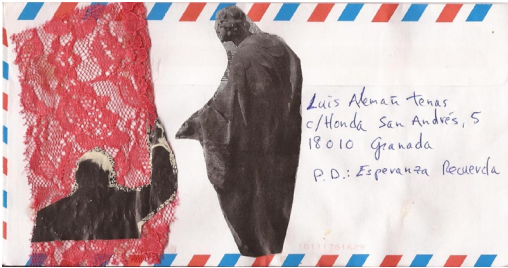 Luis Alemañ tenas
c/Honda San Andrés, 5
18010 Granada
P.D.: Esperanza Recuerda